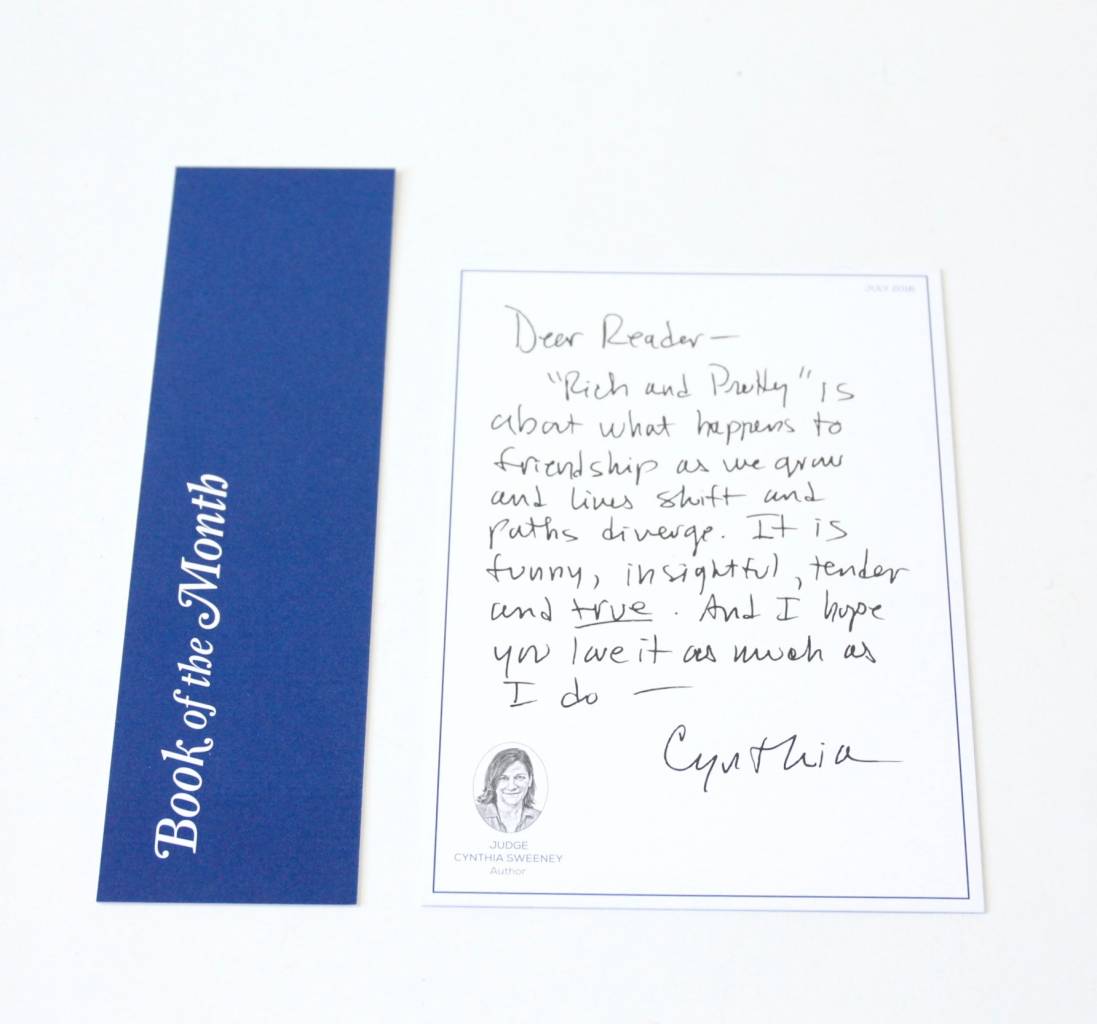 Book of the Month
JULY 2016
Dear Reader—
"Rich and Pretty" is
about what happens to
friendship as we grow
and lives shift and
paths diverge. It is
funny, insightful, tender
and true. And I hope
you love it as much as
I do —
Cynthia
JUDGE
CYNTHIA SWEENEY
Author